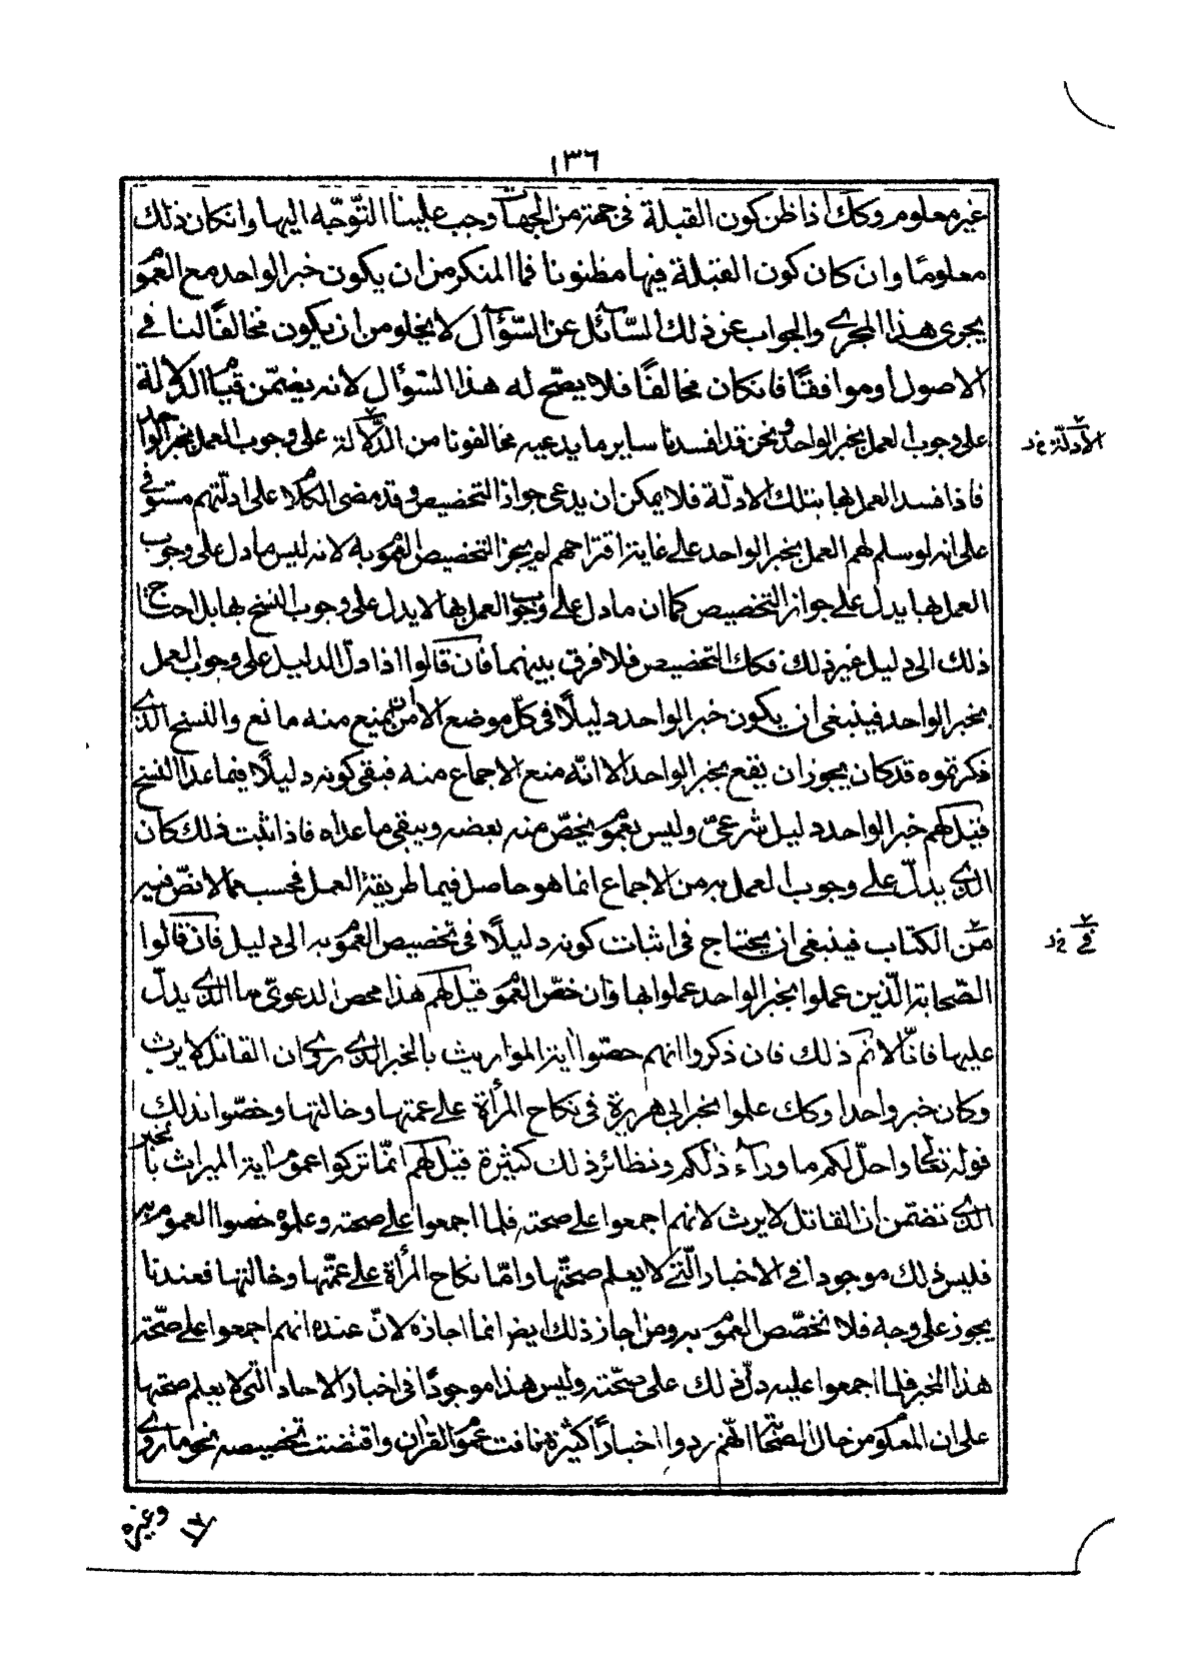 ١٣٦
غير معلوم وكك اذا ظن كون القبلة فى جهة من الجهات وجب علينا التّوجّه اليها وانكان ذلك
معلومًا وان كان كون القبلة فيها مظنونا فما المنكر من ان يكون خبر الواحد مع العمو
يجرى هذا المجرى والجواب عن ذلك السّآئل عن السّؤال لا يخلو من ان يكون مخالفًا لنا فى
الاصول او موافقًا فانكان مخالفًا فلا يصّح له هذا السّؤال لانه يضمّن قيا الدّلالة
على وجوب العمل بخبر الواحد ونحن قد افسدنا ساير ما يدعيه مخالفونا من الدّلالة على وجوب العمل بخبر الواحد
الأدلّة خ د
فاذا فسد العمل بها بتلك الادلّة فلا يمكن ان يدعى جواز التخصيص وقد مضى الكلا على ادلّتهم مستوفى
على انه لو سلم لهم العمل بخبر الواحد على غاية اقتراحهم لم يجز التخصيص العمو به لانه ليس ما دل على وجوب
العمل بها يدل على جواز التخصيص كما ان ما دل على وجوب العمل بها لا يدل على وجوب النسخ بها بل احتاج
ذلك الى دليل غير ذلك فكك التخصيص فلا فرق بينهما فان قالوا اذا دلّ الدليل على وجوب العمل
بخبر الواحد فينبغى ان يكون خبر الواحد دليلًا فى كلّ موضع الا من يمنع منه مانع والنسخ الذى
ذكرتموه قد كان يجوز ان يقع بخبر الواحد الا انّه منع الاجماع منه فبقى كونه دليلًا فيما عدا النسخ
قيل لهم خبر الواحد دليل شرعىّ وليس بعمو يخصّ منه بعضه ويبقى ما عداه فاذا ثبت ذلك كان
الذى يدلّ على وجوب العمل به من الاجماع انما هو حاصل فيما طريقة العمل فحسب مما لا نصّ فيه
من الكتاب فينبغى ان يحتاج فى اثبات كونه دليلًا فى تخصيص العمو به الى دليل فان قالوا
فى خ د
الصّحابة الّذين عملوا بخبر الواحد عملوا بها وان خصّ العمو قيل لهم هذا محض الدعوىّ ما الذى يدلّ
عليها فانّا لا نم ذلك فان ذكروا انهم خصّوا اية المواريث بالخبر الذى روى ان القاتل لا يرث
وكان خبر واحدا وكك عملوا بخبر ابى هريرة فى نكاح المرأة على عمتها وخالتها وخصّوا بذلك
قوله تعالى واحلّ لكم ما ورآء ذلكم ونظائر ذلك كثيرة قيل لهم انمّا تركوا عموم اية الميراث بالخبر
الذى تضمّن ان القاتل لا يرث لانهم اجمعوا على صحته فلما اجمعوا على صحته وعلموه خصوا العموم به
فليس ذلك موجودا فى الاخبار الّتى لا يعلم صحتّها وامّا نكاح المرأة على عمّتها وخالتها فعندنا
يجوز على وجه فلا نخصّص العمو به ومن اجاز ذلك ايضا انما اجازه لانّ عنده انهم اجمعوا على صحّة
هذا الخبر فلما اجمعوا عليه دلّ ذلك على صحّته وليس هذا موجودًا فى اخبار الاحاد التى لا يعلم صحتها
على ان المعلو من حال الصّحا انّهم ردوا اخبارًا كثيرة نافت عمو القران واقتضت تخصيصه نحو ما روى
وغيره